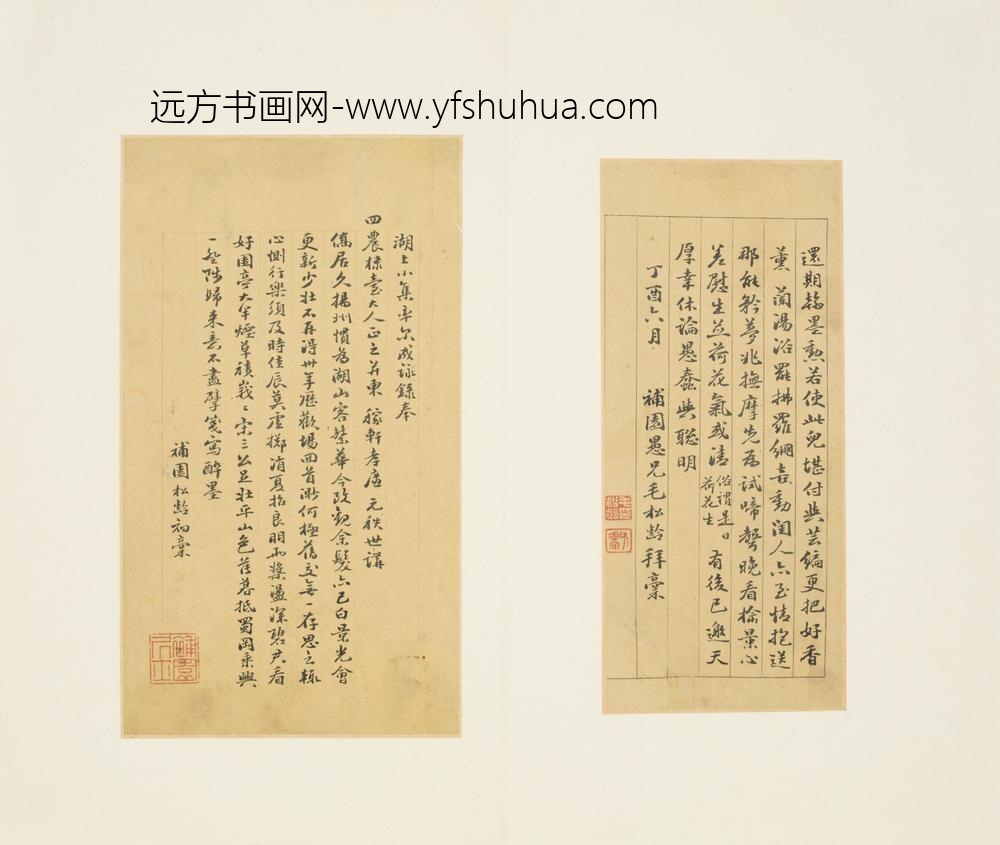 远方书画网-www.yfshuhua.com
還期翰墨勲若使此兒堪付與芸編更把好香
薰 蘭湯浴罷拂羅綳喜動閨人六至情抱送
那能矜夢兆撫摩先為試啼聲晚看榆景心
差慰生並荷花氣或清俗謂是日荷花生有後已邀天
厚幸休論愚蠢與聰明
丁酉六月 補園愚兄毛松齡拜稾
湖上小集率尔成詠錄奉
四農棣臺大人正之并柬 稼軒孝廉 元秩世講
僑居久揚州慣為湖山客繁華今改觀余髮亦已白景光會
更新少壯不再得卅年歷歡場回首渺何極舊交無一存思之輒
心惻行樂須及時佳辰莫虛擲消夏招良朋雨槳盪深碧君看
好園亭大半煙草積峩峩宋三公足壯平山色落暮抵蜀岡乘興
一登陟歸來意不盡擘箋寫醉墨
補園松齡初稾